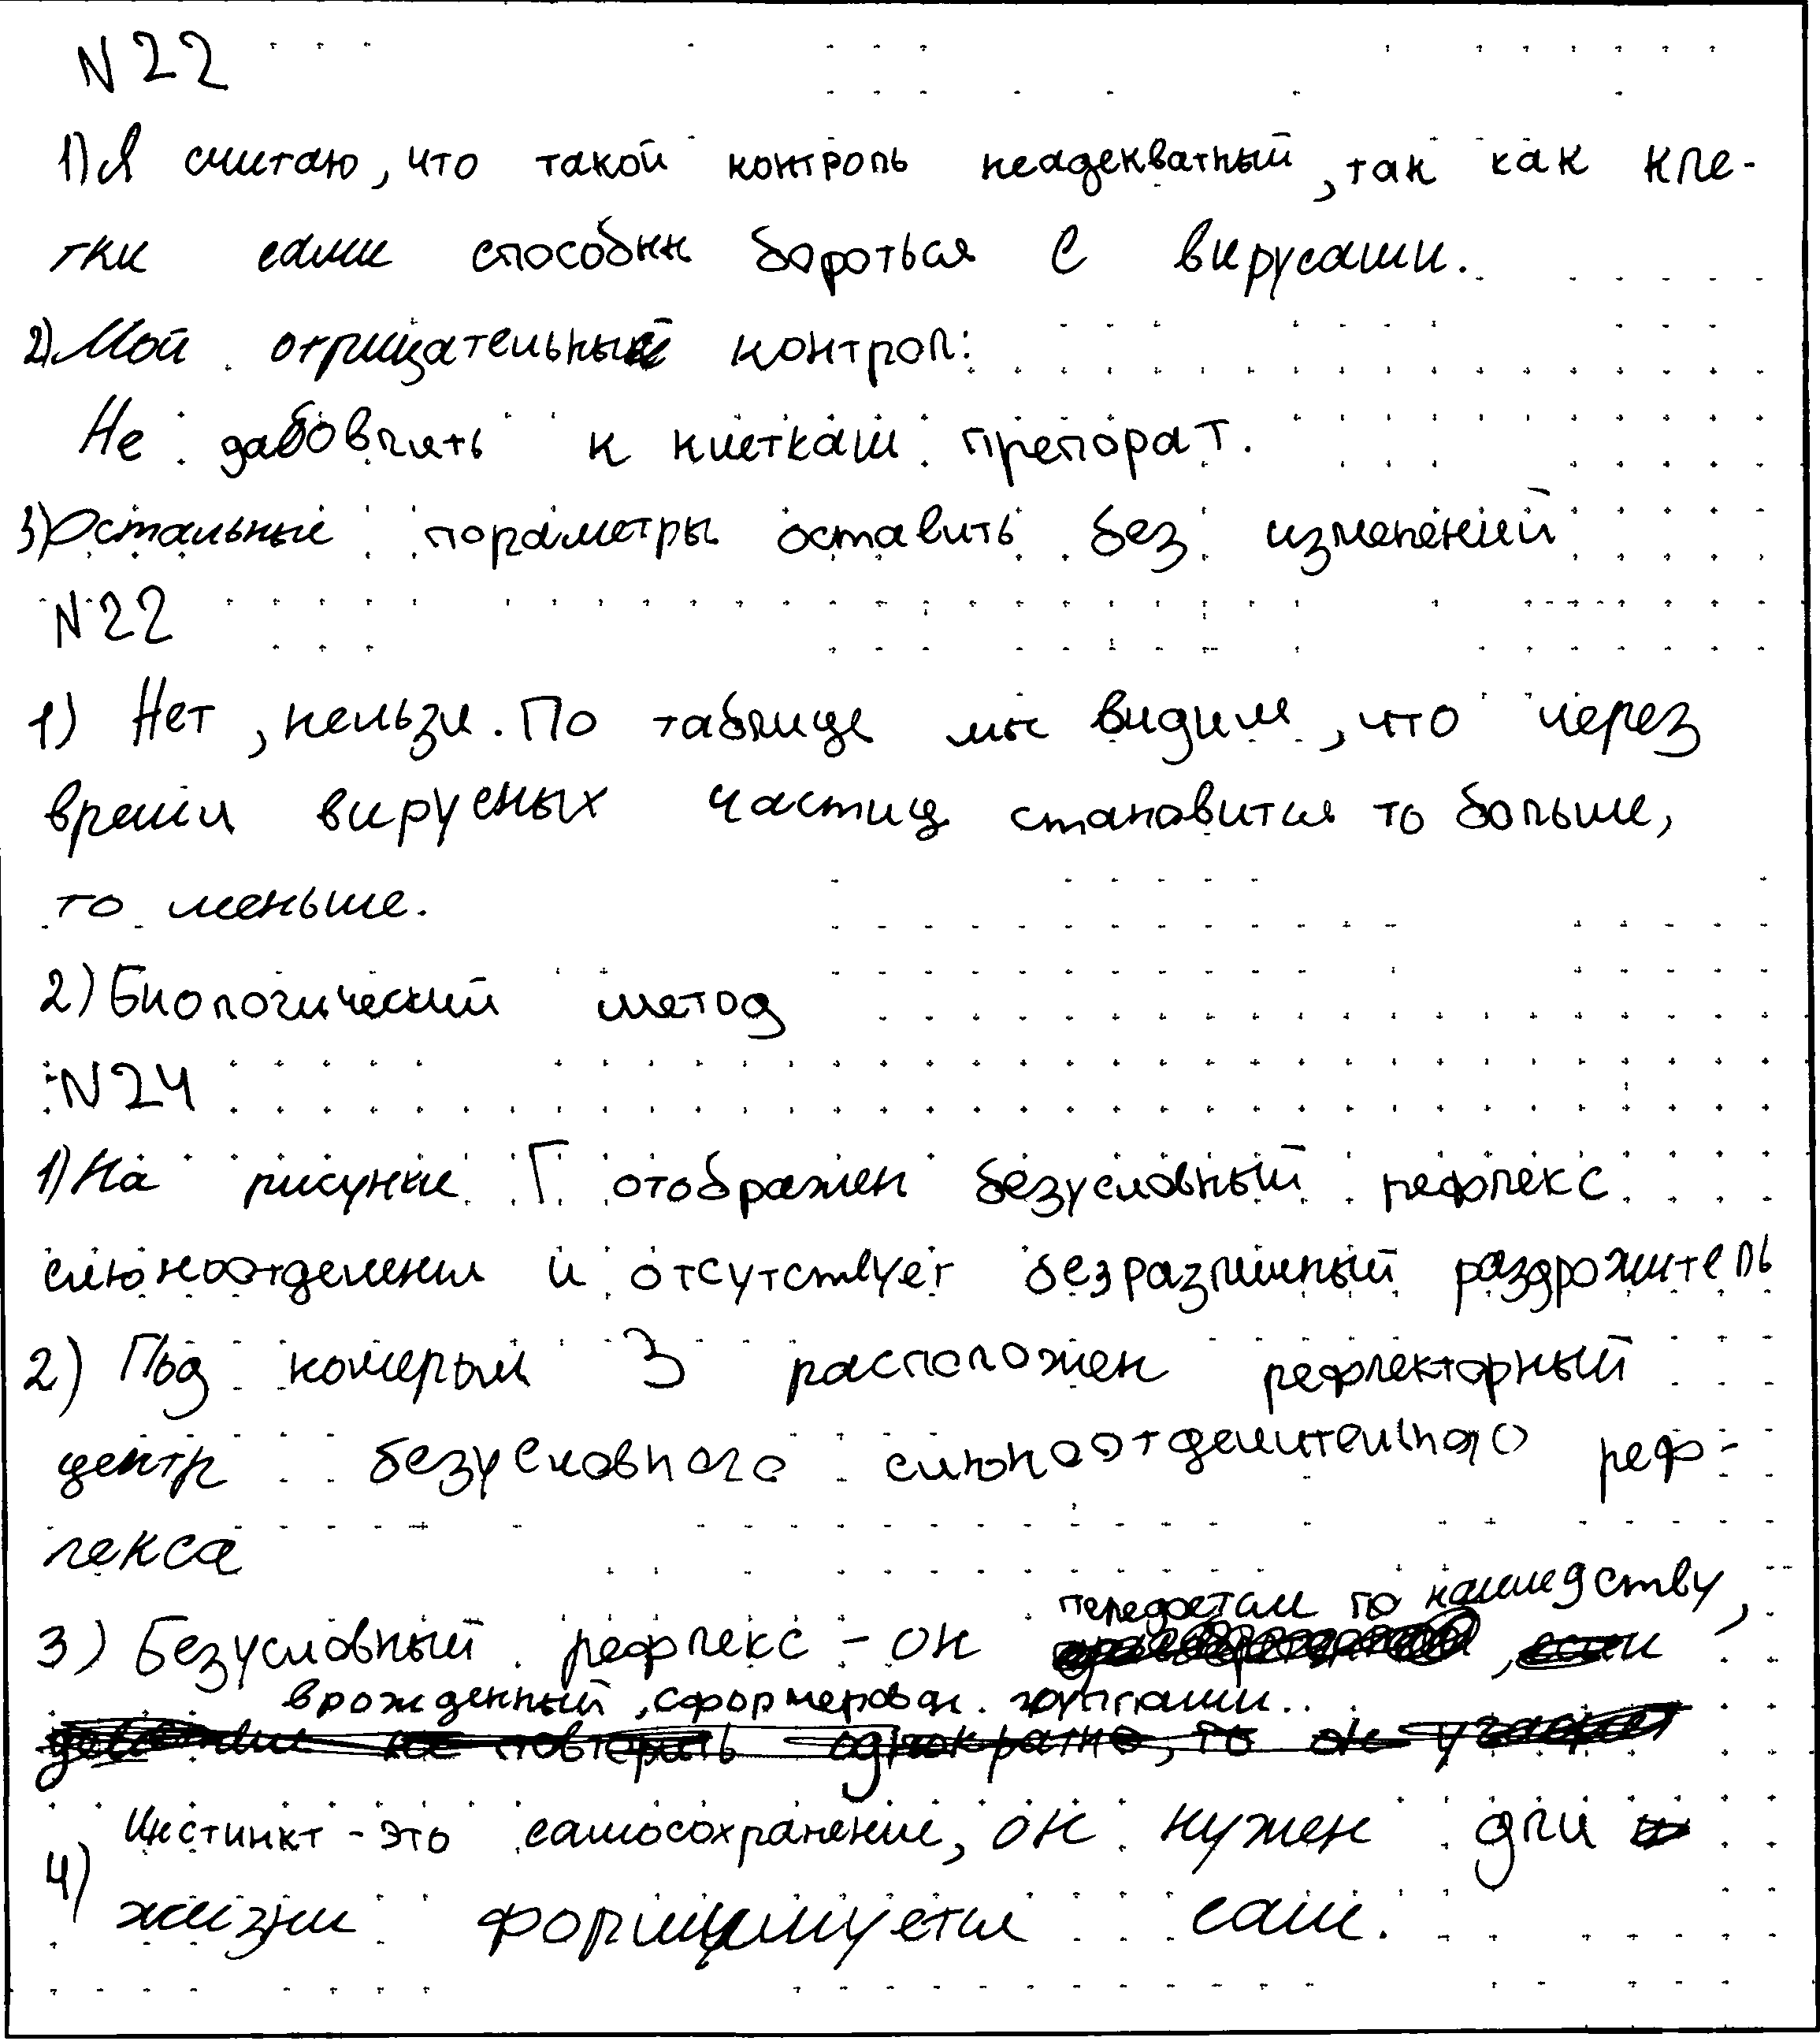 N22
1) Я считаю, что такой контроль неадекватный, так как кле-
тки сами способны бороться с вирусами.
2) Мой отрицательный контрол:
Не дабовлять к клеткам препорат.
3) Остальные пораметры оставить без изменений
N22
1) Нет, нельзя. По таблице мы видим, что через
время вирусных частиц становится то больше,
то меньше.
2) Биологический метод
N24
1) На рисунке Г отображен безусловный рефлекс
слюноотделения и отсутствует безразличный раздрожитель
2) Под номером 3 расположен рефлекторный
центр безусловного слюноотделительного реф-
лекса
передоетам по наследству,
3) Безусловный рефлекс - он
врожденный, сформерован. группами..
не повторить однократно, то он угаснет
Инстинкт - это самосохранение, он нужен для
4) жизни формируется сам.